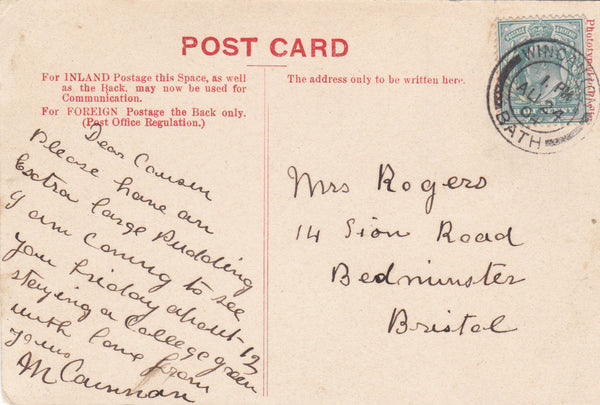 POST CARD
For INLAND Postage this Space, as well
as the Back, may now be used for
Communication.
For FOREIGN Postage the Back only.
(Post Office Regulation.)
The address only to be written here.
WINDSOR
1 PM
AU 24
04
BATH
Dear Cousin
Please have an
Extra large Pudding
I am Coming to see
you Friday about 12
staying a College green
with love from
yours
Mrs Rogers
14 Sion Road
Bedminster
Bristol